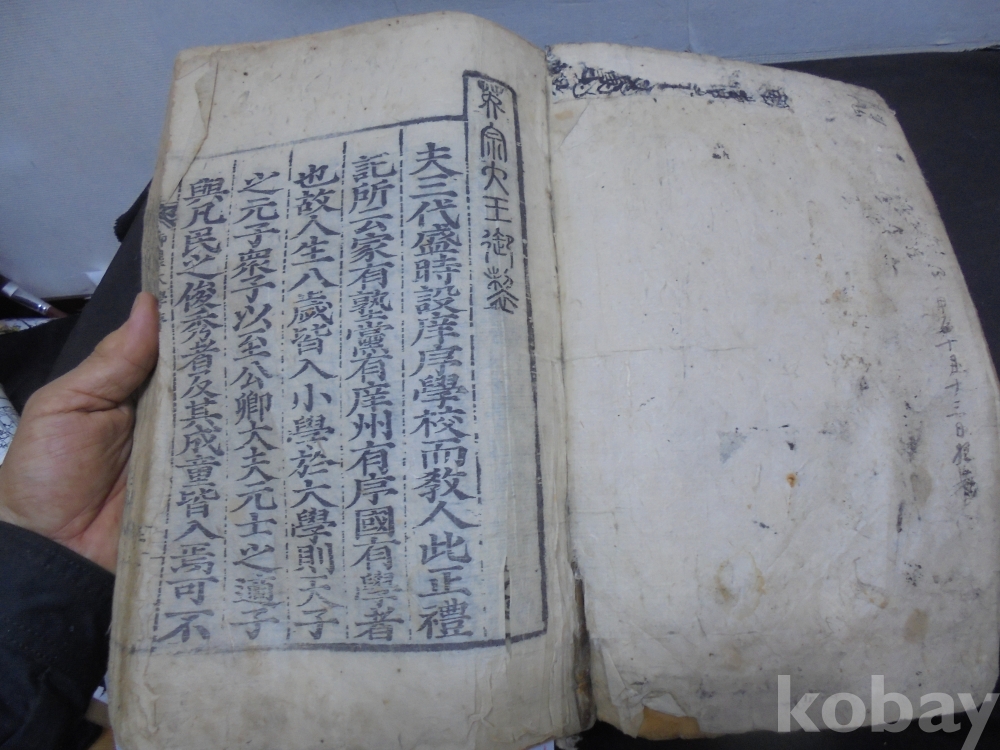 英宗大王御製
夫三代盛時設庠序學校而敎人此正禮
記所云家有塾黨有庠州有序國有學者
也故人生八歲皆入小學於大學則天子
之元子衆子以至公卿大夫元士之適子
與凡民之俊秀者及其成童皆入焉可不
kobay